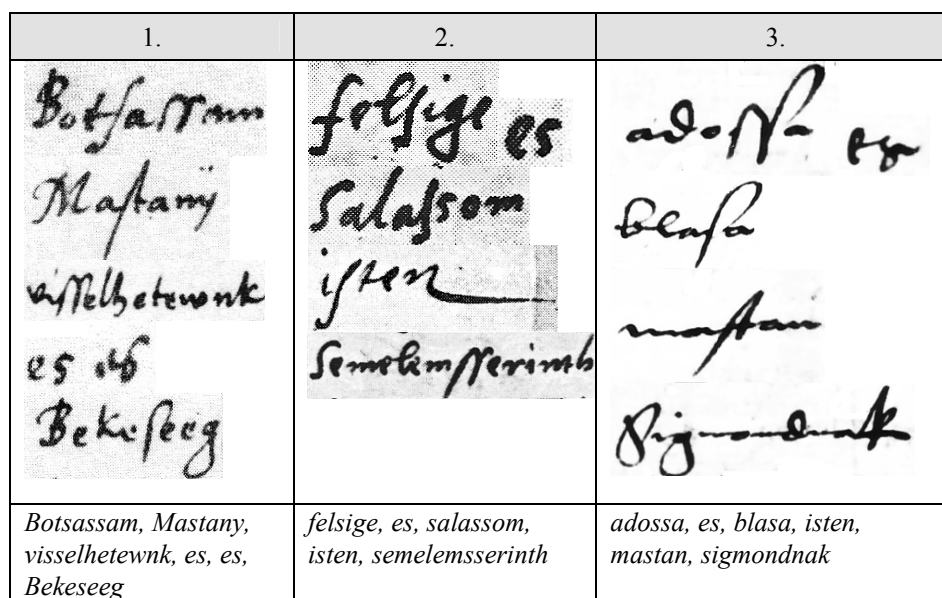 1.
2.
3.
Botſaſſam
Maſtanÿ
viſſelhetewnk
es es
Bekeſeeg
felſige es
Salaſsom
iſten
Semelemſſerinth
adoſſa es
blaſa
maſtan
Sigmondnak
Botsassam, Mastany,
visselhetewnk, es, es,
Bekeseeg
felsige, es, salassom,
isten, semelemsserinth
adossa, es, blasa, isten,
mastan, sigmondnak